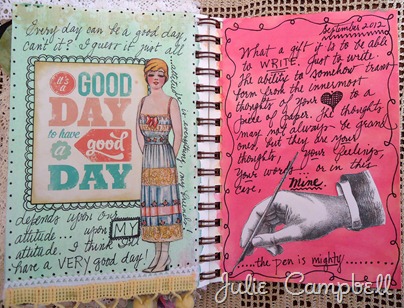 Every day can be a good day,
can't it? I guess it just all
it's a
GOOD
DAY
to have
a good
DAY
depends upon
attitude... upon MY
attitude. I think I'll
have a VERY good day!
September 2012
What a gift it is to be able
to WRITE. Just to write.
The ability to somehow trans-
form from the innermost
thoughts of your to a
piece of paper. The thoughts
may not always be grand
ones, but they are your
thoughts, your feelings,
your words... or in this
case, Mine.
....the pen is mighty......
Julie Campbell